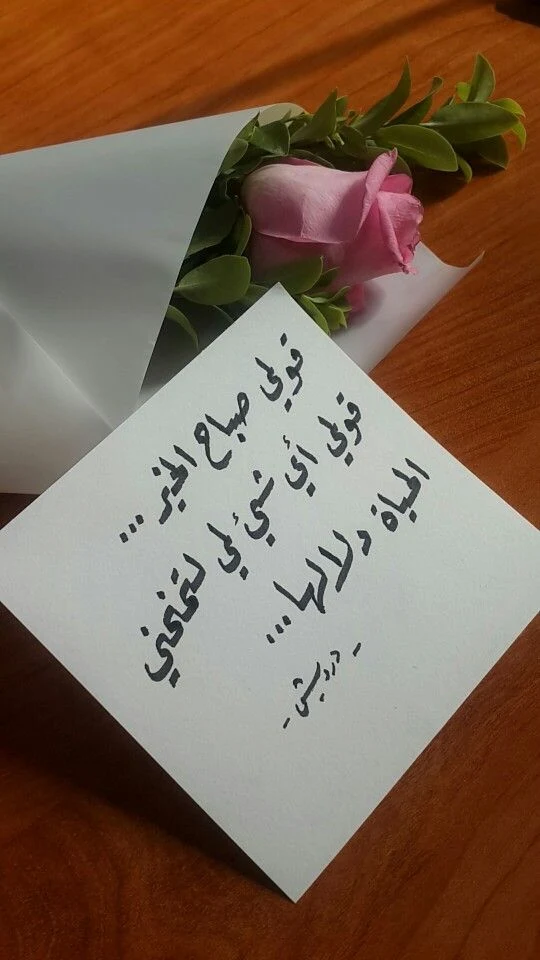 قولي صباح الخير...
قولي أي شيئ لي لتمنحني
الحياة دلالها...
- درويش -